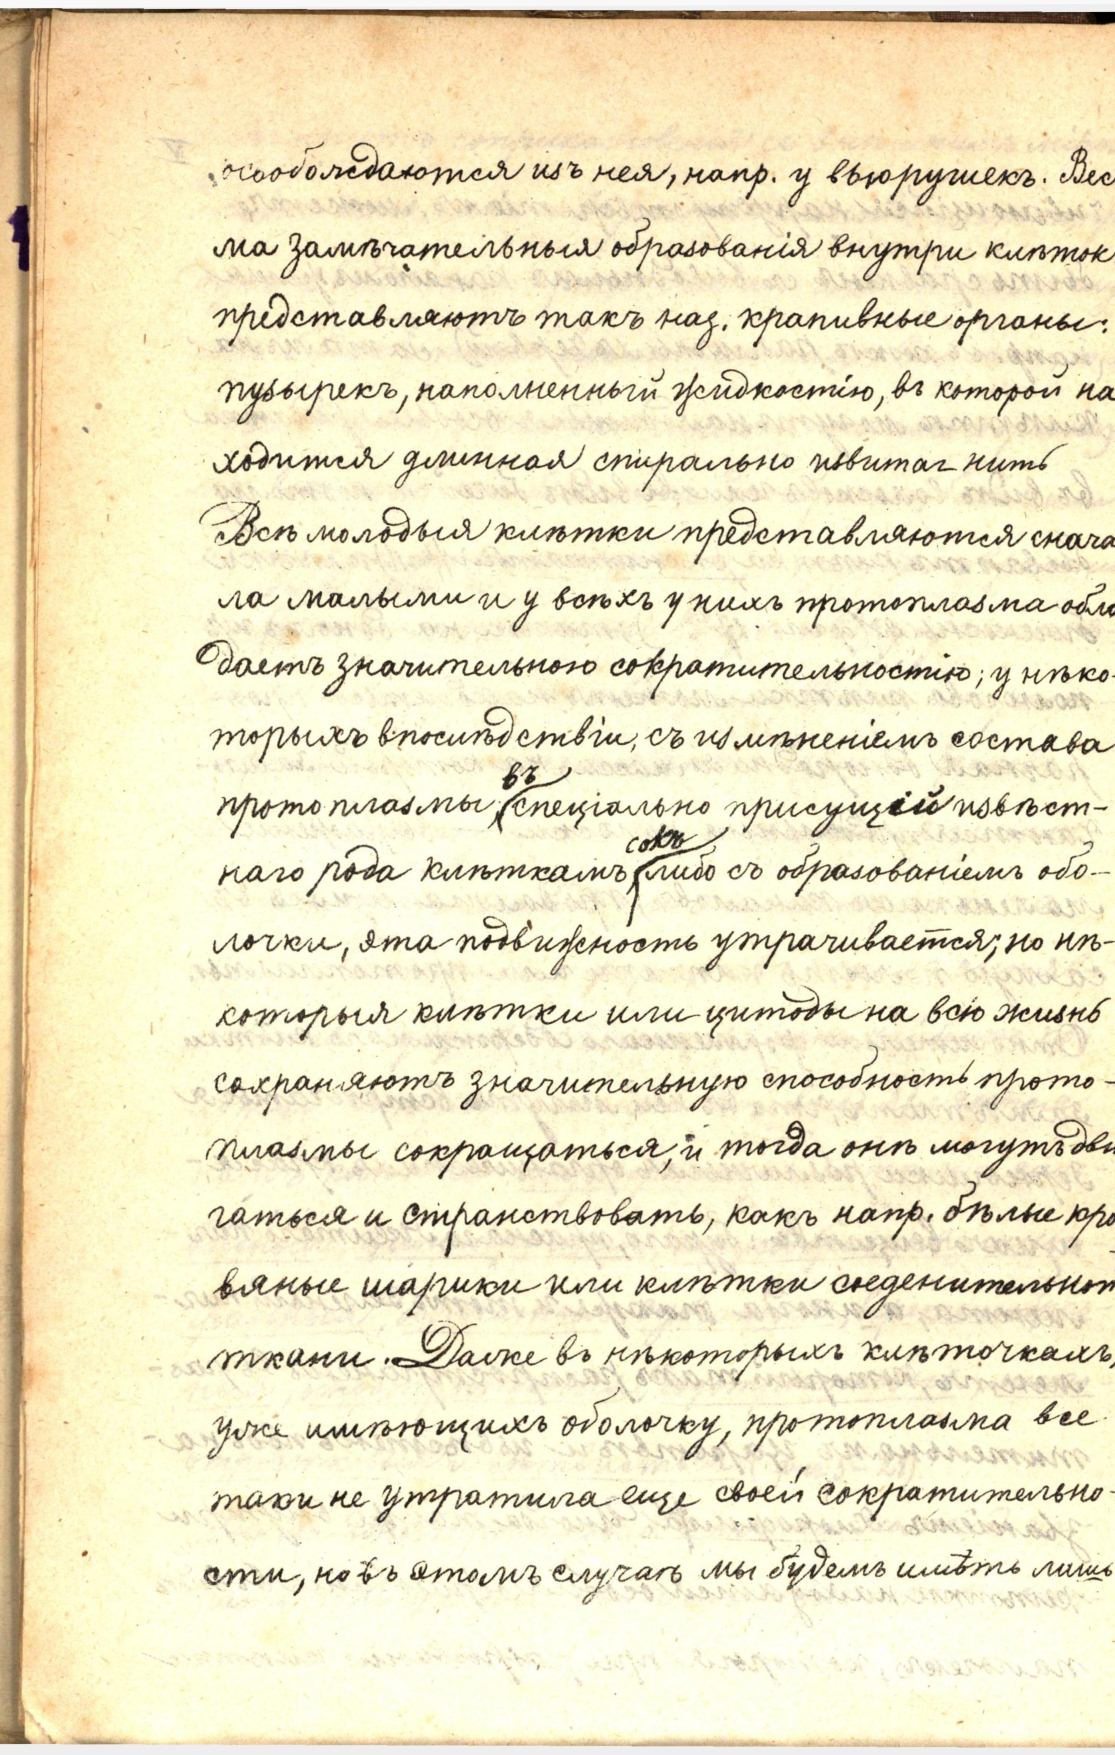 освобождаются изъ нея, напр. у вьюрушекъ. Вес
ма замѣчательныя образованія внутри клѣток
представляютъ такъ наз. крапивные органы:
пузырекъ, наполненный жидкостію, въ которой на
ходится длинная спирально извитая нить
Всѣ молодыя клѣтки представляются снача
ла малыми и у всѣхъ у нихъ протоплазма обла
даетъ значительною сократительностію; у нѣко-
торыхъ впослѣдствіи, съ измѣненіемъ состава
въ
протоплазмы, спеціально присущій извѣст-
сокъ
наго рода клѣткамъ либо съ образованіемъ обо-
лочки, эта подвижность утрачивается; но нѣ-
которыя клѣтки или цитоды на всю жизнь
сохраняютъ значительную способность прото-
плазмы сокращаться, и тогда онѣ могутъ дви
гаться и странствовать, какъ напр. бѣлые кро
вяные шарики или клѣтки соеденительной
ткани. Далѣе въ нѣкоторыхъ клѣточкахъ,
уже имѣющихъ оболочку, протоплазма все
таки не утратила еще своей сократительно-
сти, но въ этомъ случаѣ мы будемъ имѣть лишь